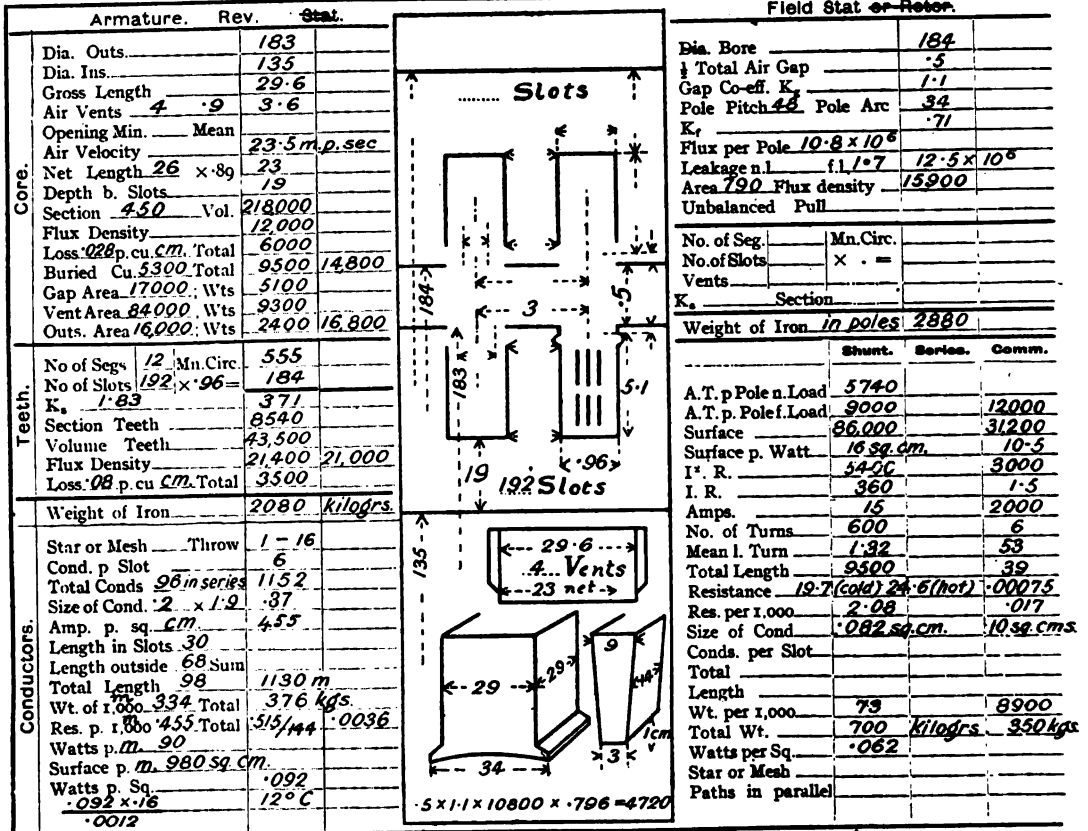 Armature. Rev. Stat.
Core.
Dia. Outs. 183
Dia. Ins. 135
Gross Length 29·6
Air Vents 4 ·9 3·6
Opening Min. Mean
Air Velocity 23·5 m.p.sec
Net Length 26 ×·89 23
Depth b. Slots 19
Section 450 Vol. 218,000
Flux Density 12,000
Loss ·028 p.cu.cm. Total 6000
Buried Cu. 5300 Total 9500 14,800
Gap Area 17000; Wts 5100
Vent Area 84000; Wts 9300
Outs. Area 16,000; Wts 2400 16,800
Teeth.
No of Segs 12 Mn.Circ. 555
No of Slots 192 × ·96= 184
Kₛ 1·83 371
Section Teeth 8540
Volume Teeth 43,500
Flux Density 21,400 21,000
Loss ·08 p.cu cm. Total 3500
Weight of Iron 2080 kilogrs.
Conductors.
Star or Mesh Throw 1 – 16
Cond. p Slot 6
Total Conds 96 in series 1152
Size of Cond. ·2 × 1·9 ·37
Amp. p. sq. cm. 455
Length in Slots 30
Length outside 68 Sum
Total Length 98 1130 m
Wt. of 1,000 m 334 Total 376 kgs.
Res. p. 1,000 m ·455 Total ·515/144 ·0036
Watts p.m. 90
Surface p. m. 980 sq cm.
Watts p. Sq. ·092
·092 × ·16 12° C
·0012
Slots
184
3
·5
183
5·1
·96
19
192 Slots
135
29·6
4 Vents
23 net
29
29
34
9
44
1cm
3
·5×1·1×10800 × ·796 =4720
Field Stat or Rotor.
Dia. Bore 184
½ Total Air Gap ·5
Gap Co-eff. K 1·1
Pole Pitch 48 Pole Arc 34
K ·71
Flux per Pole 10·8 × 10⁶
Leakage n.l f.l. 1·7 12·5 × 10⁶
Area 790 Flux density 15900
Unbalanced Pull
No. of Seg. Mn.Circ.
No. of Slots × · =
Vents
Kₛ Section
Weight of Iron in poles 2880
Shunt. Series. Comm.
A.T. p Pole n.Load 5740
A.T. p. Pole f.Load 9000 12000
Surface 86,000 31,200
Surface p. Watt 16 sq.cm. 10·5
I². R. 5400 3000
I. R. 360 1·5
Amps. 15 2000
No. of Turns 600 6
Mean l. Turn 1·32 53
Total Length 9500 39
Resistance 19·7 (cold) 24·6 (hot) ·00075
Res. per 1,000 2·08 ·017
Size of Cond ·082 sq.cm. 10 sq.cms.
Conds. per Slot
Total
Length
Wt. per 1,000 73 8900
Total Wt. 700 kilogrs. 350 kgs
Watts per Sq. ·062
Star or Mesh
Paths in parallel